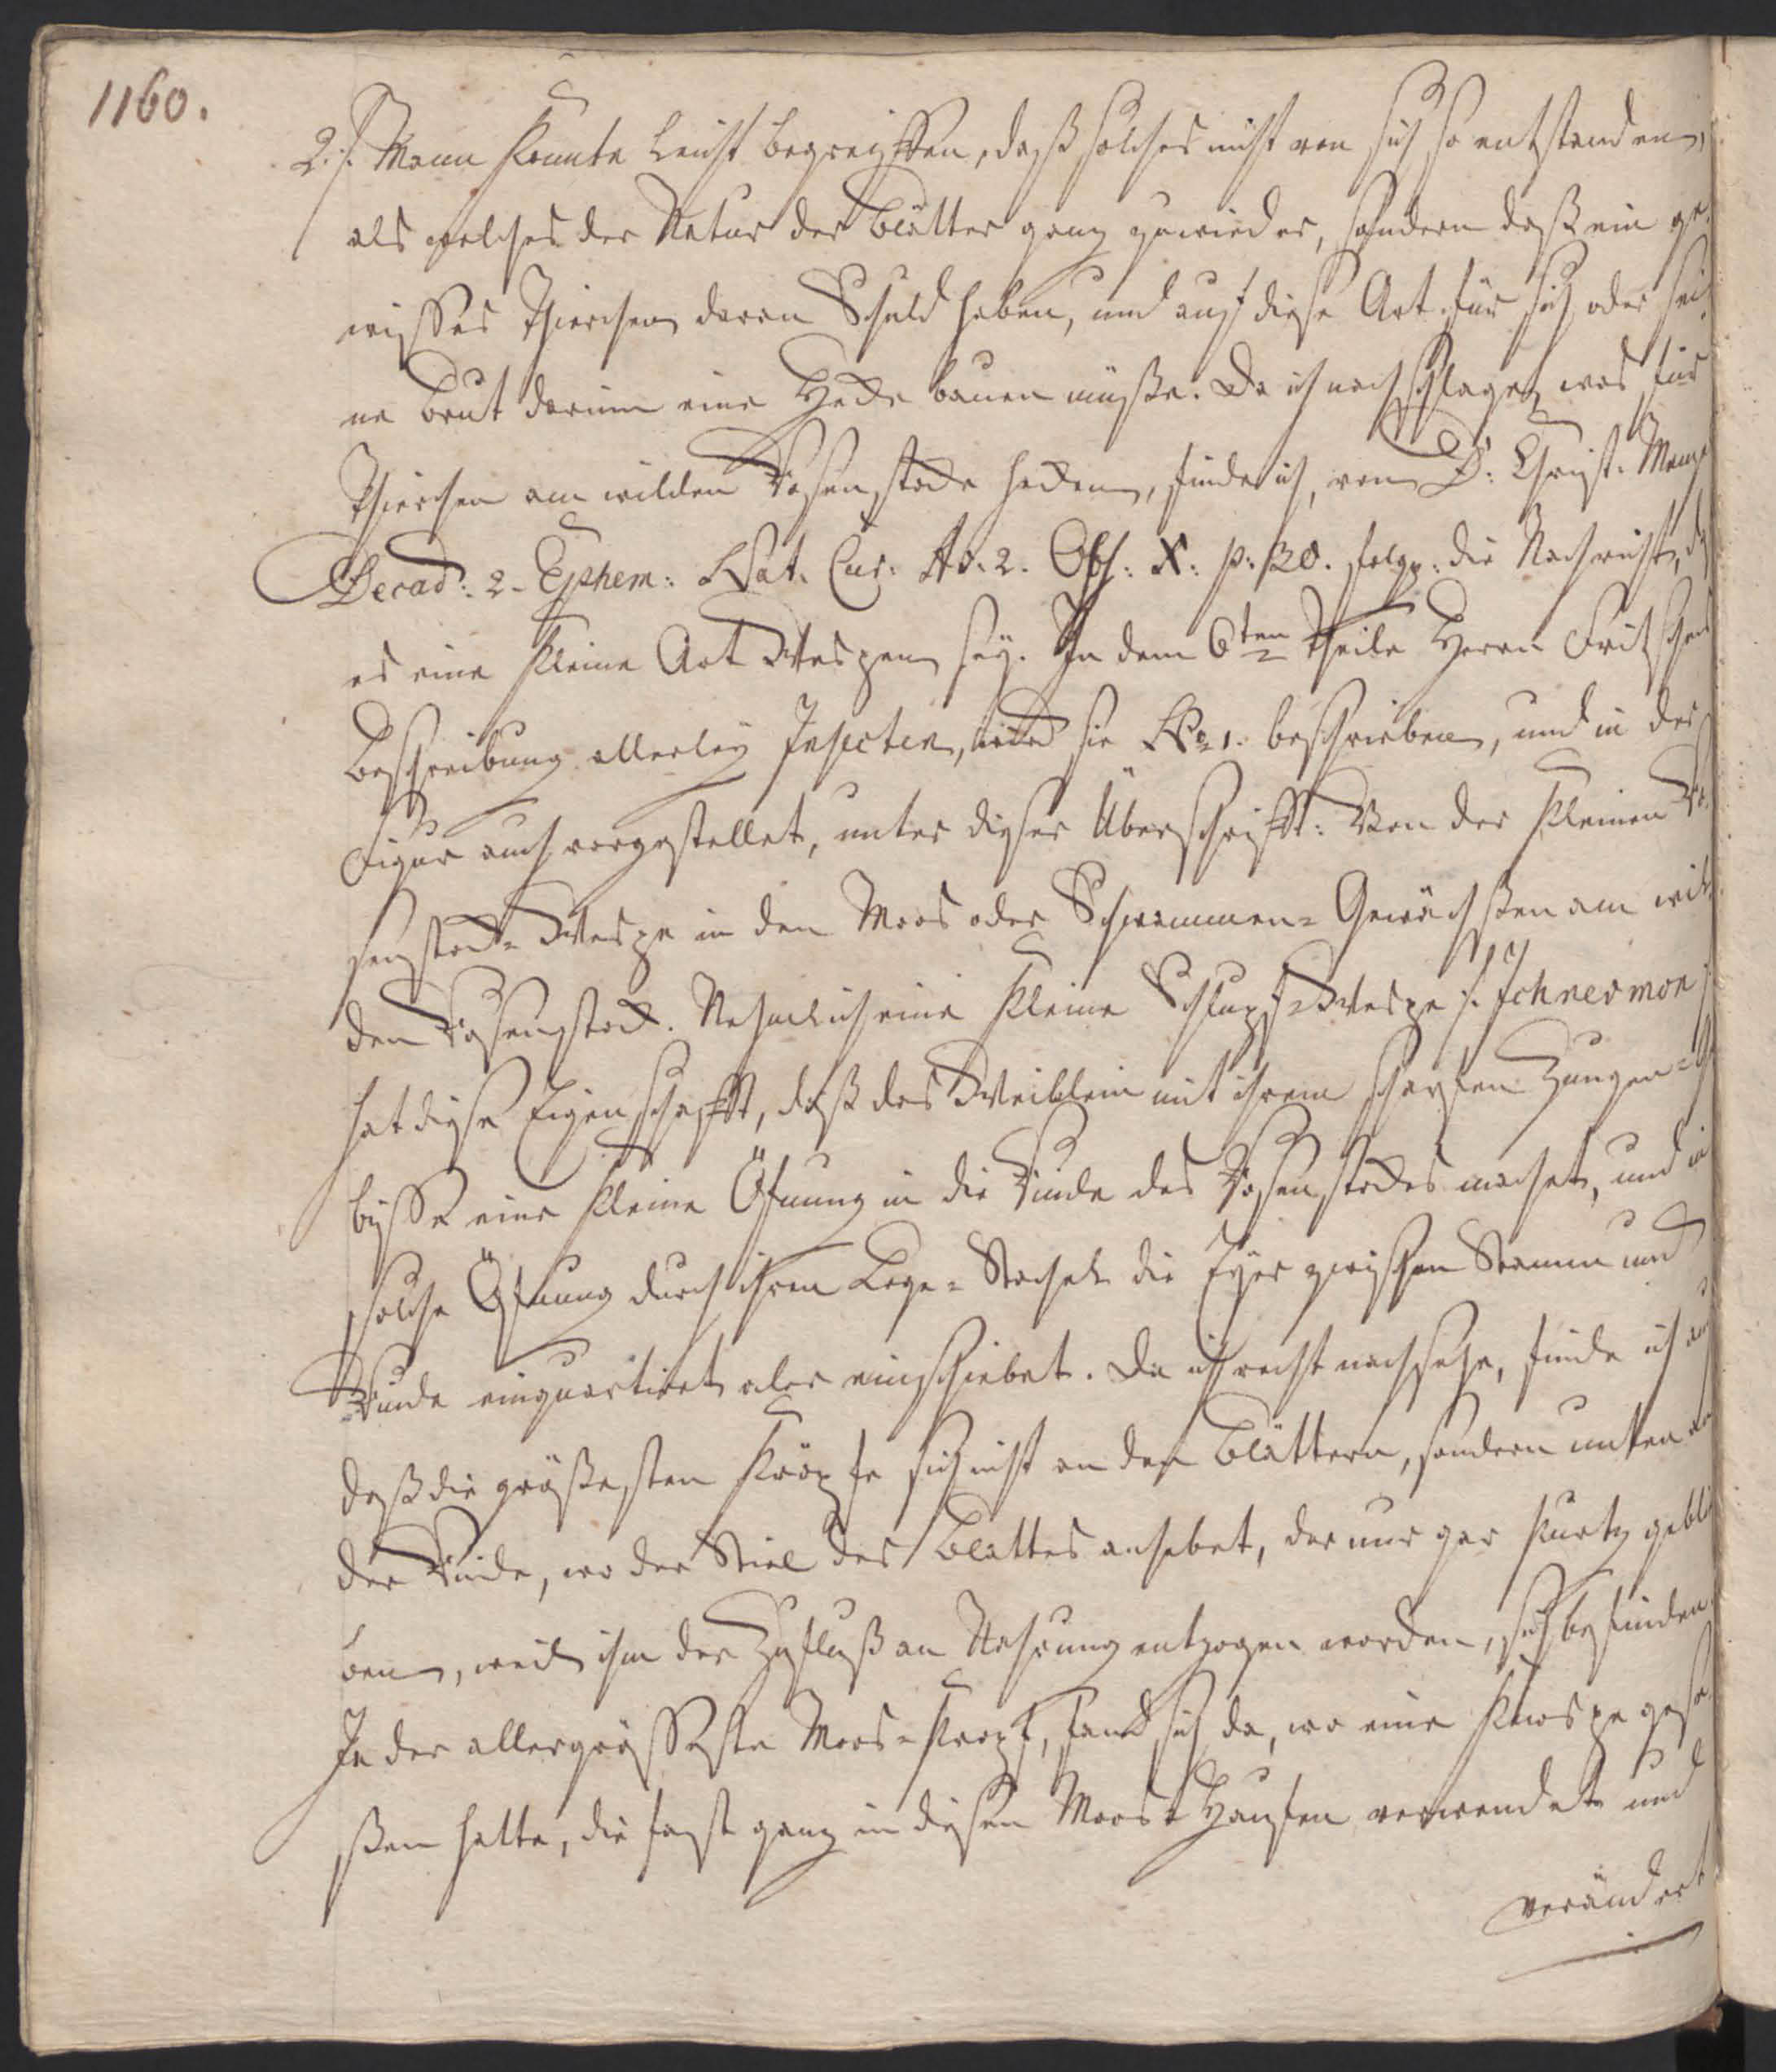 1160.
2./. Mann konnte leicht begreiffen, daß solches nicht von sich so entstanden,
als welches der Natur der Blätter ganz zuwieder, sondern daß ein ge-
wisses Thierchen daran Schuld haben, und auf diese Art für sich oder sei-
ne Brut darinn eine Hecke bauen müße. Da ich nachschlage, was für
Thierchen am wilden Rosenstocke hecken, finde ich, von D: Christ. Menz
Decad: 2. Ephem: Nat. Cur: Ao. 2. Obs: X: p: 30. folgg: die Nachricht, daß
es eine kleine Art Wespen sey. In dem 6ten Theile Herrn Frischens
Beschreibung allerley Insecten, wird sie No. 1. beschrieben, und in der
Figur auch vorgestellet, unter dieser Überschrifft: Von der kleinen Ro-
senstock-Wespe in den Moos oder Schwammen-Gewächsen am wil-
den Rosenstock. Nehmlich eine kleine Schlupf-Wespe /: Ichnevmon :/
hat diese Eigenschafft, daß das Weiblein mit ihrem scharfen Zangen-Ge-
bisse eine kleine Öfnung in die Rinde des Rosenstockes machet, und in
solche Öfnung durch ihren Lege-Stachel die Eyer zwischen Stamm und
Rinde einquartiret oder einschiebet. Da ich recht nachsehe, finde ich auch
daß die größesten Kröpfe sich nicht an den Blättern, sondern unten an
der Rinde, wo der Stiel des Blattes anhebet, der nur gar kurtz gebli-
ben, weil ihm der Zufluß an Nahrung entzogen worden, sich befinden.
Ja der allergrösseste Moos-Kropf, fand sich da, wo eine Knospe gese-
ßen hatte, die fast ganz in diesen Moos-Haufen verwendet und
verändert